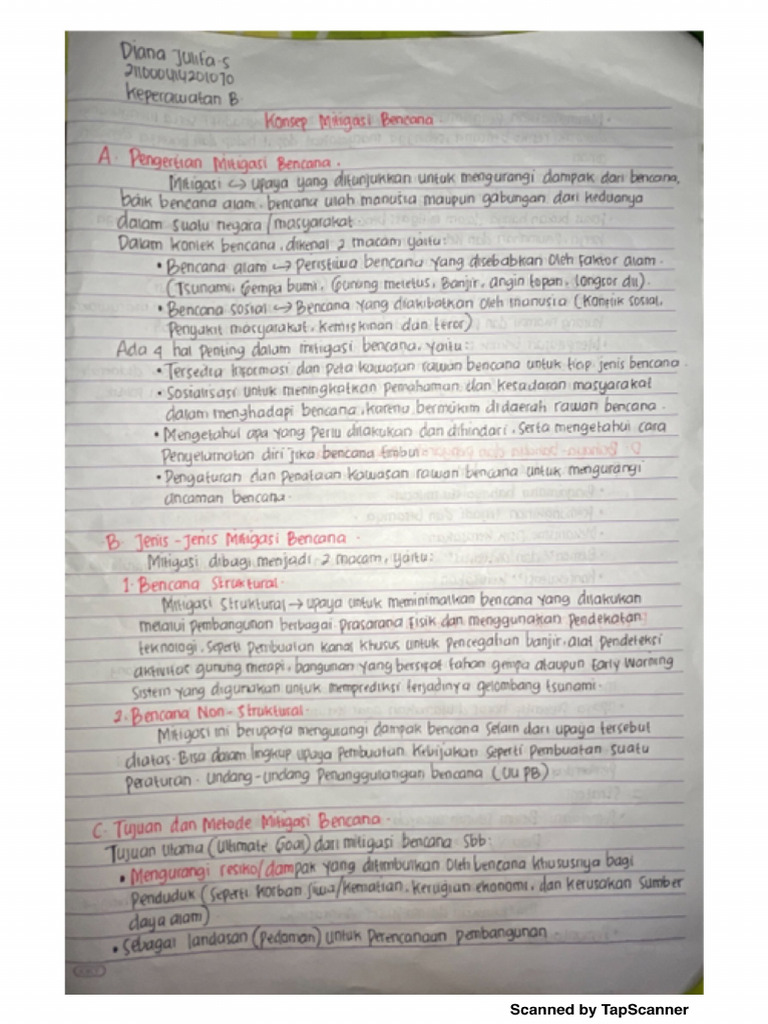 Diana Julifa.S
211000414201070
Keperawatan B
Konsep Mitigasi Bencana.
A. Pengertian Mitigasi Bencana.
Mitigasi ↔ upaya yang ditunjukkan untuk mengurangi dampak dari bencana,
baik bencana alam, bencana ulah manusia maupun gabungan dari keduanya
dalam suatu negara/masyarakat.
Dalam konteks bencana, dikenal 2 macam yaitu:
• Bencana alam → Peristiwa bencana yang disebabkan oleh faktor alam.
(Tsunami, Gempa bumi, Gunung meletus, Banjir, angin topan, longsor dll).
• Bencana sosial → Bencana yang diakibatkan oleh manusia (Konflik sosial,
Penyakit masyarakat, kemiskinan dan teror)
Ada 4 hal penting dalam mitigasi bencana, yaitu:
• Tersedia informasi dan peta kawasan rawan bencana untuk tiap jenis bencana.
• Sosialisasi untuk meningkatkan pemahaman dan kesadaran masyarakat
dalam menghadapi bencana, karena bermukim didaerah rawan bencana.
• Mengetahui apa yang perlu dilakukan dan dihindari, serta mengetahui cara
Penyelamatan diri jika bencana timbul.
• Pengaturan dan penataan kawasan rawan bencana untuk mengurangi
ancaman bencana.
B. Jenis-Jenis Mitigasi Bencana.
Mitigasi dibagi menjadi 2 macam, yaitu:
1. Bencana Struktural.
Mitigasi Struktural → upaya untuk meminimalkan bencana yang dilakukan
melalui pembangunan berbagai prasarana fisik dan menggunakan pendekatan
teknologi, seperti pembuatan kanal khusus untuk pencegahan banjir, alat pendeteksi
aktivitas gunung merapi, bangunan yang bersifat tahan gempa ataupun Early Warning
Sistem yang digunakan untuk memprediksi terjadinya gelombang tsunami.
2. Bencana Non-Struktural.
Mitigasi ini berupaya mengurangi dampak bencana selain dari upaya tersebut
diatas. Bisa dalam lingkup upaya pembuatan kebijakan seperti pembuatan suatu
peraturan. Undang-undang Penanggulangan bencana (UU PB)
C. Tujuan dan Metode Mitigasi Bencana.
Tujuan Utama (Ultimate Goal) dari mitigasi bencana sbb:
• Mengurangi resiko/dampak yang ditimbulkan oleh bencana khususnya bagi
Penduduk (seperti korban jiwa/kematian, kerugian ekonomi, dan kerusakan sumber
daya alam)
• Sebagai landasan (pedoman) untuk perencanaan pembangunan.
Scanned by TapScanner